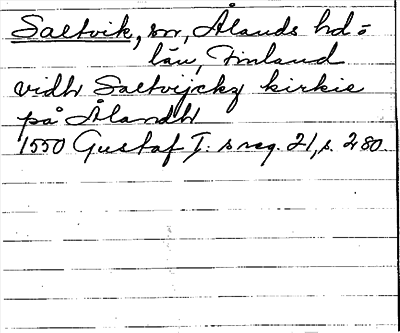 Saltvik, sn, Ålands hd o
län, Finland
vidh Saltvijckz kirkie
på Ålandh
1550 Gustaf I:s reg. 21, s. 280.